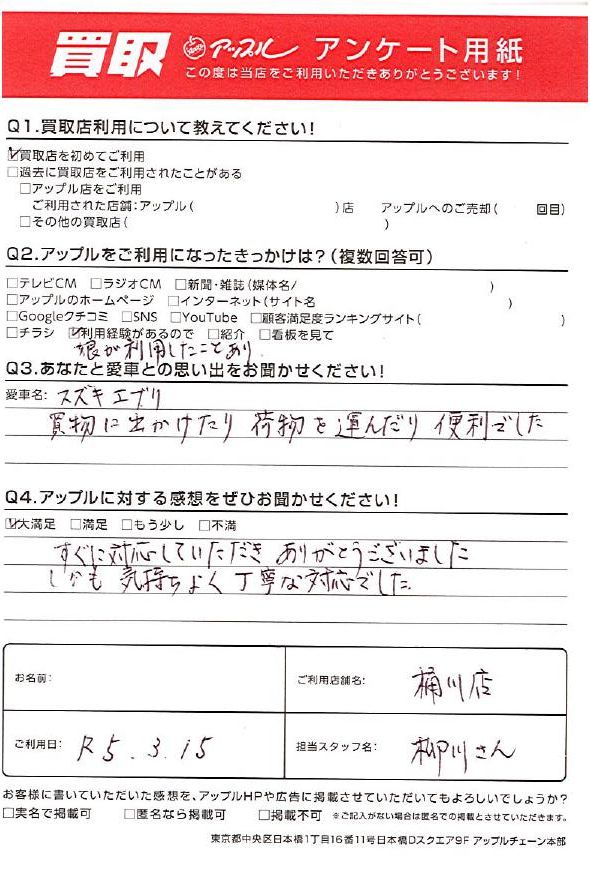 買取 アップル アンケート用紙
この度は当店をご利用いただきありがとうございます!
Q1.買取店利用について教えてください!
☑買取店を初めてご利用
□過去に買取店をご利用されたことがある
□アップル店をご利用
ご利用された店舗:アップル( )店 アップルへのご売却( 回目)
□その他の買取店( )
Q2.アップルをご利用になったきっかけは?(複数回答可)
□テレビCM □ラジオCM □新聞・雑誌(媒体名/ )
□アップルのホームページ □インターネット(サイト名 )
□Googleクチコミ □SNS □YouTube □顧客満足度ランキングサイト( )
□チラシ ☑利用経験があるので □紹介 □看板を見て
娘が利用したことあり
Q3.あなたと愛車との思い出をお聞かせください!
愛車名: スズキ エブリ
買物に出かけたり 荷物を運んだり 便利でした
Q4.アップルに対する感想をぜひお聞かせください!
☑大満足 □満足 □もう少し □不満
すぐに対応していただき ありがとうございました
しかも 気持ちよく 丁寧な対応でした.
お名前: ご利用店舗名: 桶川店
ご利用日: R5.3.15 担当スタッフ名: 柳川さん
お客様に書いていただいた感想を、アップルHPや広告に掲載させていただいてもよろしいでしょうか?
□実名で掲載可 □匿名なら掲載可 □掲載不可 ※ご記入がない場合は匿名での掲載とさせていただきます。
東京都中央区日本橋1丁目16番11号日本橋Dスクエア9F アップルチェーン本部